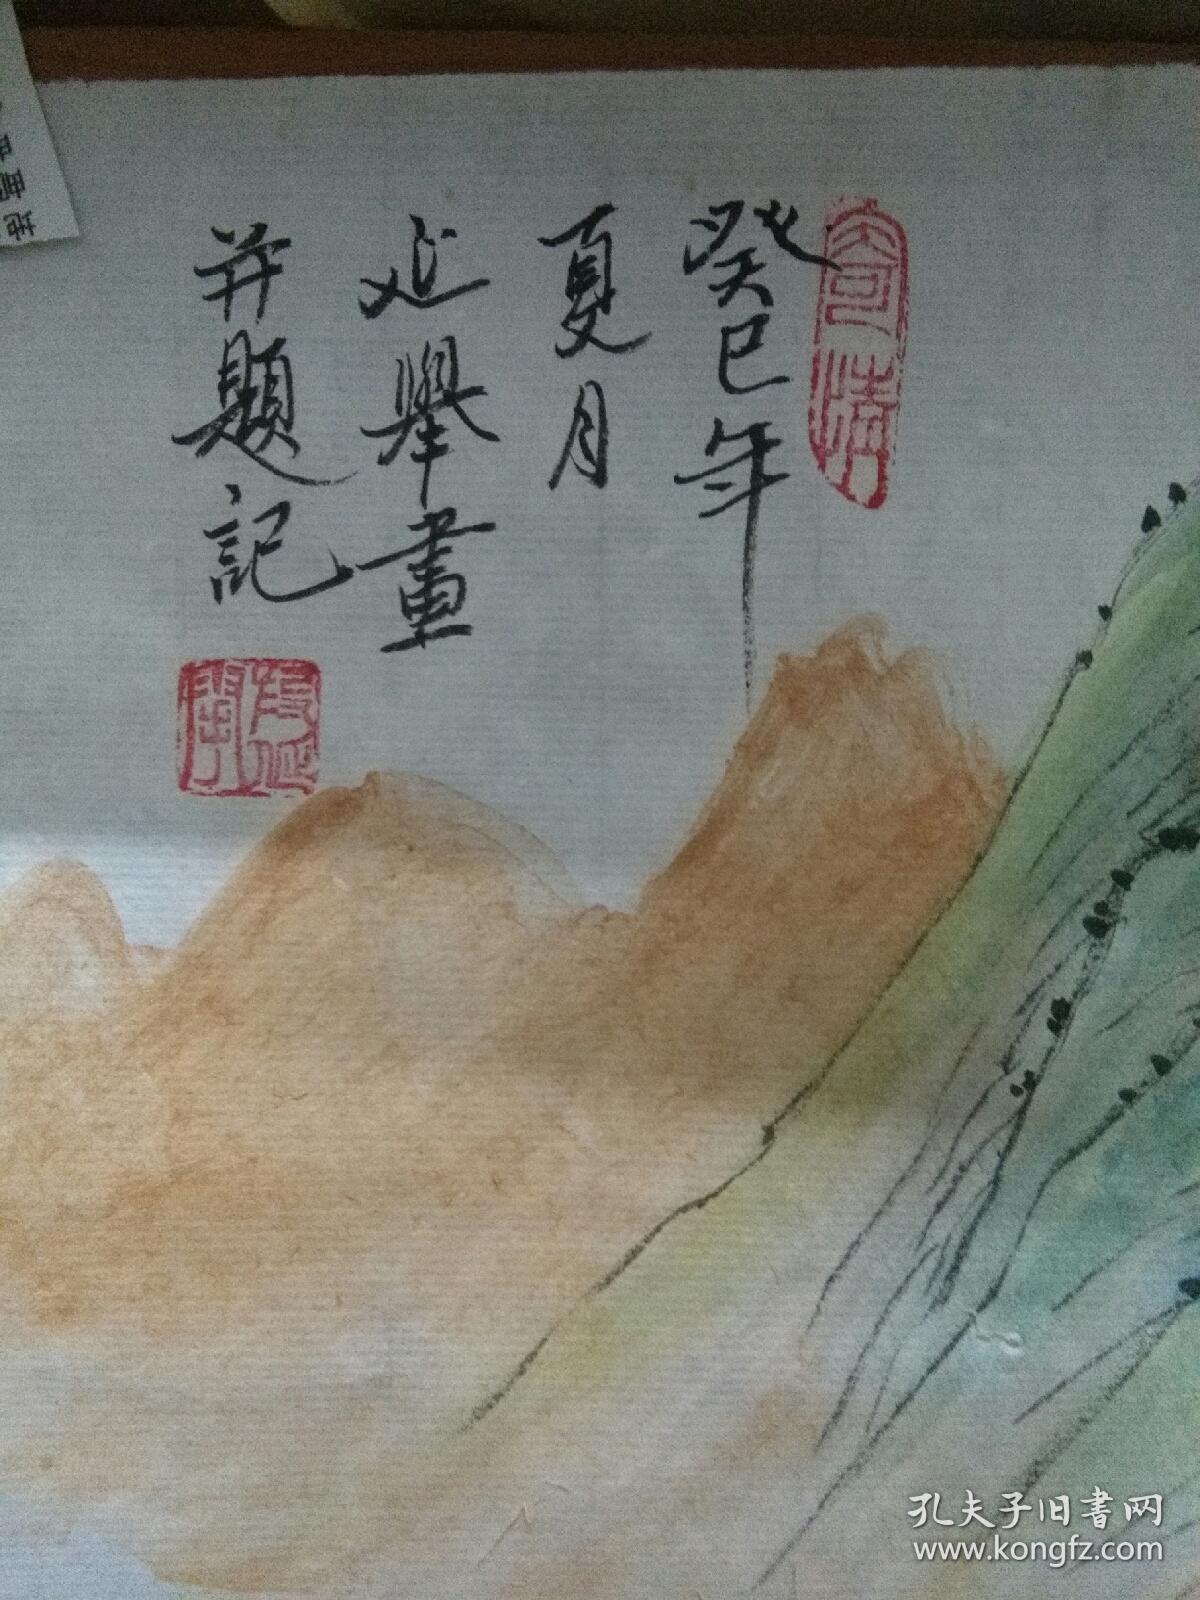 癸巳年
夏月
延舉畫
并題記
奇情
孔夫子旧書网
www.kongfz.com